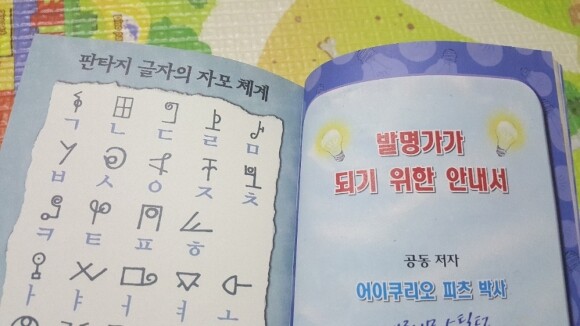 판타지 글자의 자모 체계
ㄱ ㄴ ㄷ ㄹ ㅁ
ㅂ ㅅ ㅇ ㅈ ㅊ
ㅋ ㅌ ㅍ ㅎ
ㅏ ㅑ ㅓ ㅕ ㅗ
발명가가
되기 위한 안내서
공동 저자
어이쿠리오 피츠 박사